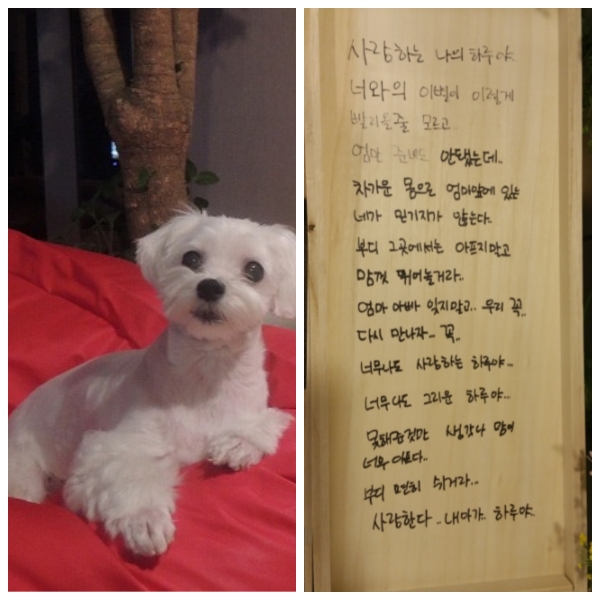 사랑하는 나의 하루야
너와의 이별이 이렇게
빨리올줄 모르고
엄만 준비도 안됐는데..
차가운 몸으로 엄마앞에 있는
네가 믿기지가 않는다.
부디 그곳에서는 아프지말고
맘껏 뛰어놀거라..
엄마 아빠 잊지말고.. 우리 꼭..
다시 만나자.. 꼭..
너무나도 사랑하는 하루야..
너무나도 그리운 하루야..
못해준것만 생각나 맘이
너무 아프다..
부디 편히 쉬거라..
사랑한다.. 내아가.. 하루야..